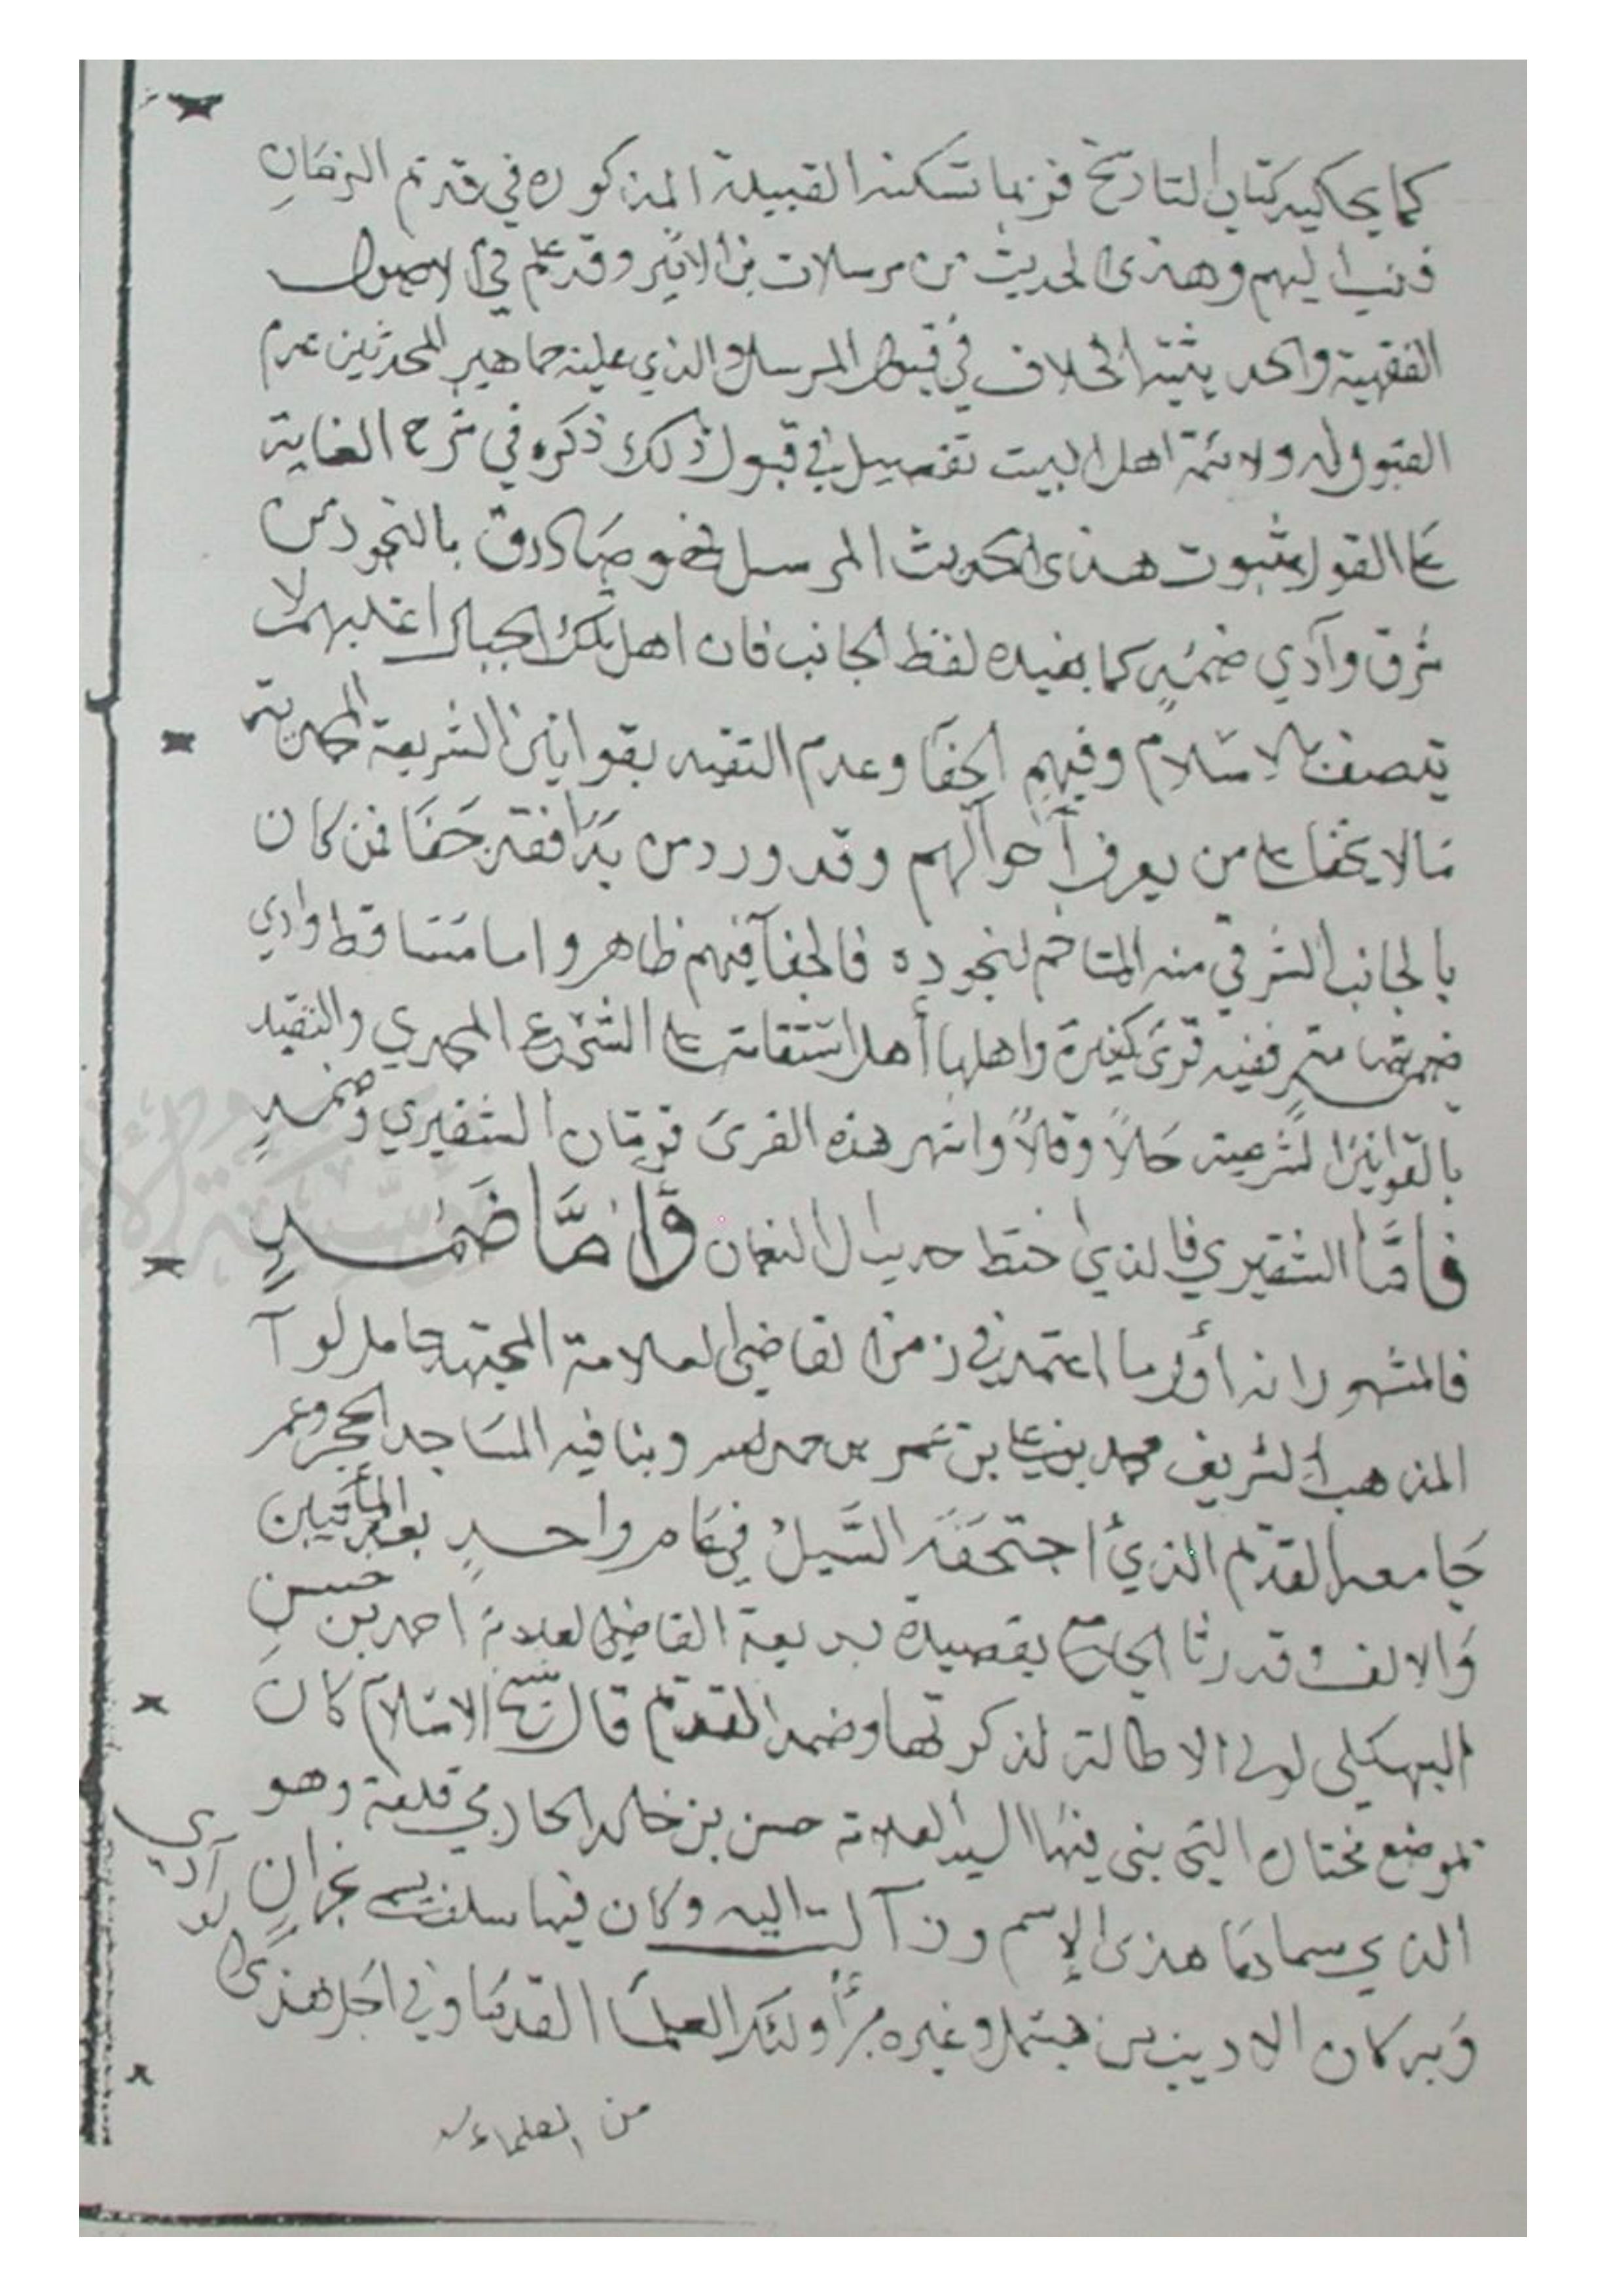 كما يحكيه كتاب التاريخ فربما تسكنه القبيلة المذكوره في قديم الزمان
فنسب اليهم وهذى الحديث من مرسلات بن الاثير وقد علم في الاصول
الفقهية والحديثية الخلاف في قبول المرسل والذي عليه جماهير المحدثين عدم
القبول له ولائمة اهل البيت تفصيل في قبول ذلك ذكره في شرح الغاية
على القول بثبوت هذى الحديث المرسل فهو صادق بالنجود من
شرق وآدي ضمد كما يفيده لفظ الجانب فان اهل تلك الجبال اغلبهم لا
يتصف بالاسلام وفيهم الجفا وعدم التقيد بقوانين الشريعة المحمدية
مالا يخفا على من يعرف أحوالهم وقد ورد من بدا فقد جفا فمن كان
بالجانب الشرقي منه المتاخم لنجوده فالجفآ فيهم ظاهر واما مساقط وادي
ففيه قرى كثيرة واهلها أهل استقامة على الشرع المحمدي والتقيد
بالقوانين الشرعية حالاً وقالاً واشهر هذه القرى قريتان الشقيري وضمد
فامّا الشقيري فالذي اختط حديبا ال النعمان وأمّا ضمد
فالمشهور انه أول ما اعتمد في زمن القاضي العلامة المجتهد حامل لوآ
المذهب الشريف محمد بن علي بن عمر وبنا فيه المساجد الحجر وعمر
جامعه القديم الذي اجتحفه السَّيلُ في عام واحد بعد المأتين
والالف وقد رثا الجامع بقصيدة بديعة القاضي العلامة احمد بن حسن
البهكلي لولا الاطالة لذكرتها وضمد القديم قال شيخ الاسلام كان
بموضع مختاره التي بنى فيها السيد العلامة حسن بن خالد الحازمي قلعة وهو
الذي سماها هذى الإسم وزآلت اليه وكان فيما سلف يسمى نجران
وبه كان الاديب بن هتيمل وغيره من أولئك العلما القدما وفي اجل هذى
من العلماء